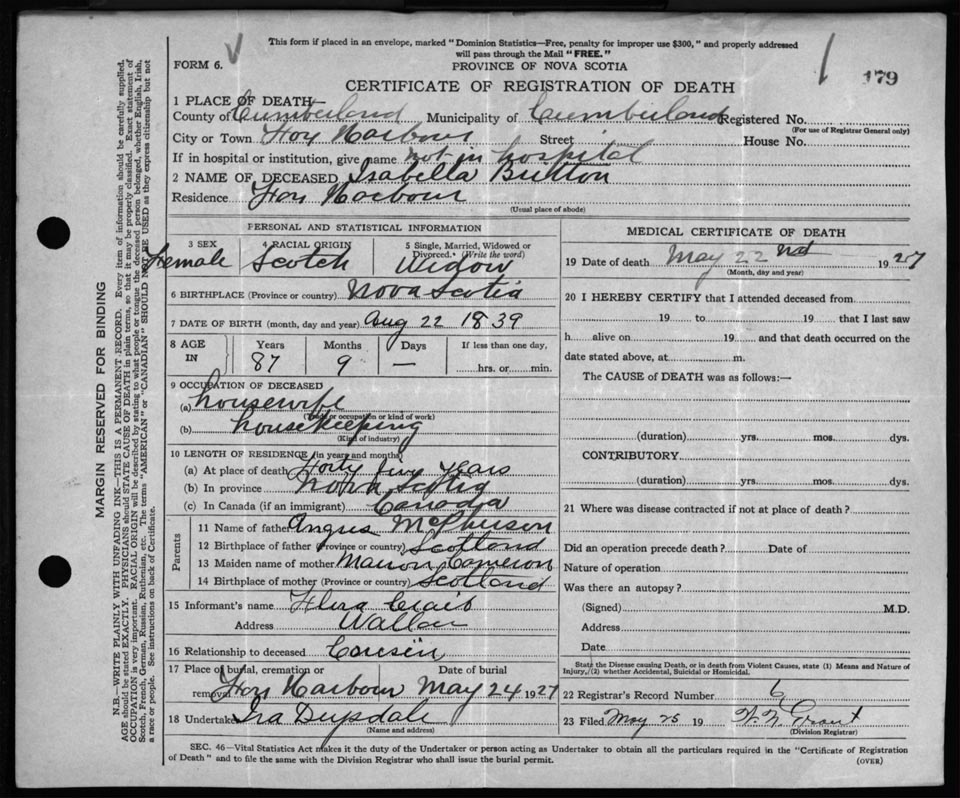 This form if placed in an envelope, marked "Dominion Statistics—Free, penalty for improper use $300," and properly addressed
will pass through the Mail "FREE."
FORM 6.
PROVINCE OF NOVA SCOTIA
179
CERTIFICATE OF REGISTRATION OF DEATH
1 PLACE OF DEATH—
County of Cumberland Municipality of Cumberland Registered No.
(For use of Registrar General only)
City or Town Fox Harbour Street House No.
If in hospital or institution, give name not in hospital
2 NAME OF DECEASED Isabella Britton
Residence Fox Harbour
(Usual place of abode)
PERSONAL AND STATISTICAL INFORMATION
3 SEX 4 RACIAL ORIGIN 5 Single, Married, Widowed or Divorced. (Write the word)
Female Scotch Widow
6 BIRTHPLACE (Province or country) Nova Scotia
7 DATE OF BIRTH (month, day and year) Aug 22 1839
8 AGE IN Years Months Days If less than one day,
87 9 — hrs. or min.
9 OCCUPATION OF DECEASED
(a) housewife
(Trade or occupation or kind of work)
(b) housekeeping
(Kind of industry)
10 LENGTH OF RESIDENCE (in years and months)
(a) At place of death Forty five years
(b) In province Nova Scotia
(c) In Canada (if an immigrant) Canada
Parents
11 Name of father Angus McPherson
12 Birthplace of father (Province or country) Scotland
13 Maiden name of mother Marion Cameron
14 Birthplace of mother (Province or country) Scotland
15 Informant's name Flora
Address Wallace
16 Relationship to deceased Cousin
17 Place of burial, cremation or removal Date of burial
Fox Harbour May 24 1927
18 Undertaker Ira Drysdale
(Name and address)
MEDICAL CERTIFICATE OF DEATH
19 Date of death May 22nd 1927
(Month, day and year)
20 I HEREBY CERTIFY that I attended deceased from
19 to 19 that I last saw
h alive on 19 and that death occurred on the
date stated above, at m.
The CAUSE of DEATH was as follows:—
(duration) yrs. mos. dys.
CONTRIBUTORY
(duration) yrs. mos. dys.
21 Where was disease contracted if not at place of death?
Did an operation precede death? Date of
Nature of operation
Was there an autopsy?
(Signed) M.D.
Address
Date
State the Disease causing Death, or in death from Violent Causes, state (1) Means and Nature of
Injury, (2) whether Accidental, Suicidal or Homicidal.
22 Registrar's Record Number 6
23 Filed May 25 19 Grant
(Division Registrar)
SEC. 46—Vital Statistics Act makes it the duty of the Undertaker or person acting as Undertaker to obtain all the particulars required in the "Certificate of Registration
of Death" and to file the same with the Division Registrar who shall issue the burial permit.
(OVER)
MARGIN RESERVED FOR BINDING
N.B.—WRITE PLAINLY WITH UNFADING INK—THIS IS A PERMANENT RECORD. Every item of information should be carefully supplied.
AGE should be stated EXACTLY. PHYSICIANS should STATE CAUSE OF DEATH in plain terms, so that it may be properly classified. Exact statement of
OCCUPATION is very important. RACIAL ORIGIN will be described by stating to what people or tongue the deceased person belonged, whether English, Irish,
Scotch, French, German, Russian, Ruthenian, etc. The terms "AMERICAN" or "CANADIAN" SHOULD NOT BE USED as they express citizenship but not
a race or people. See instructions on back of Certificate.